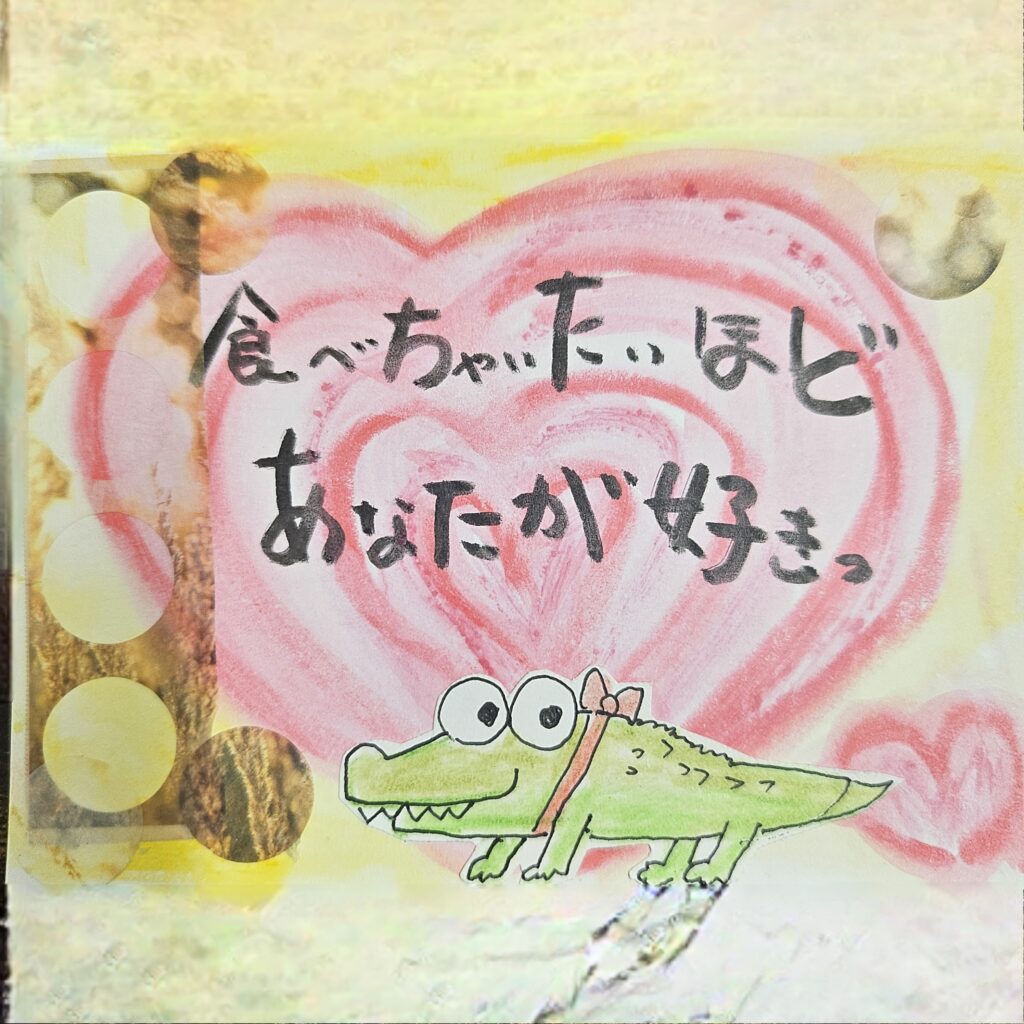 食べちゃいたいほど
あなたが好きっ